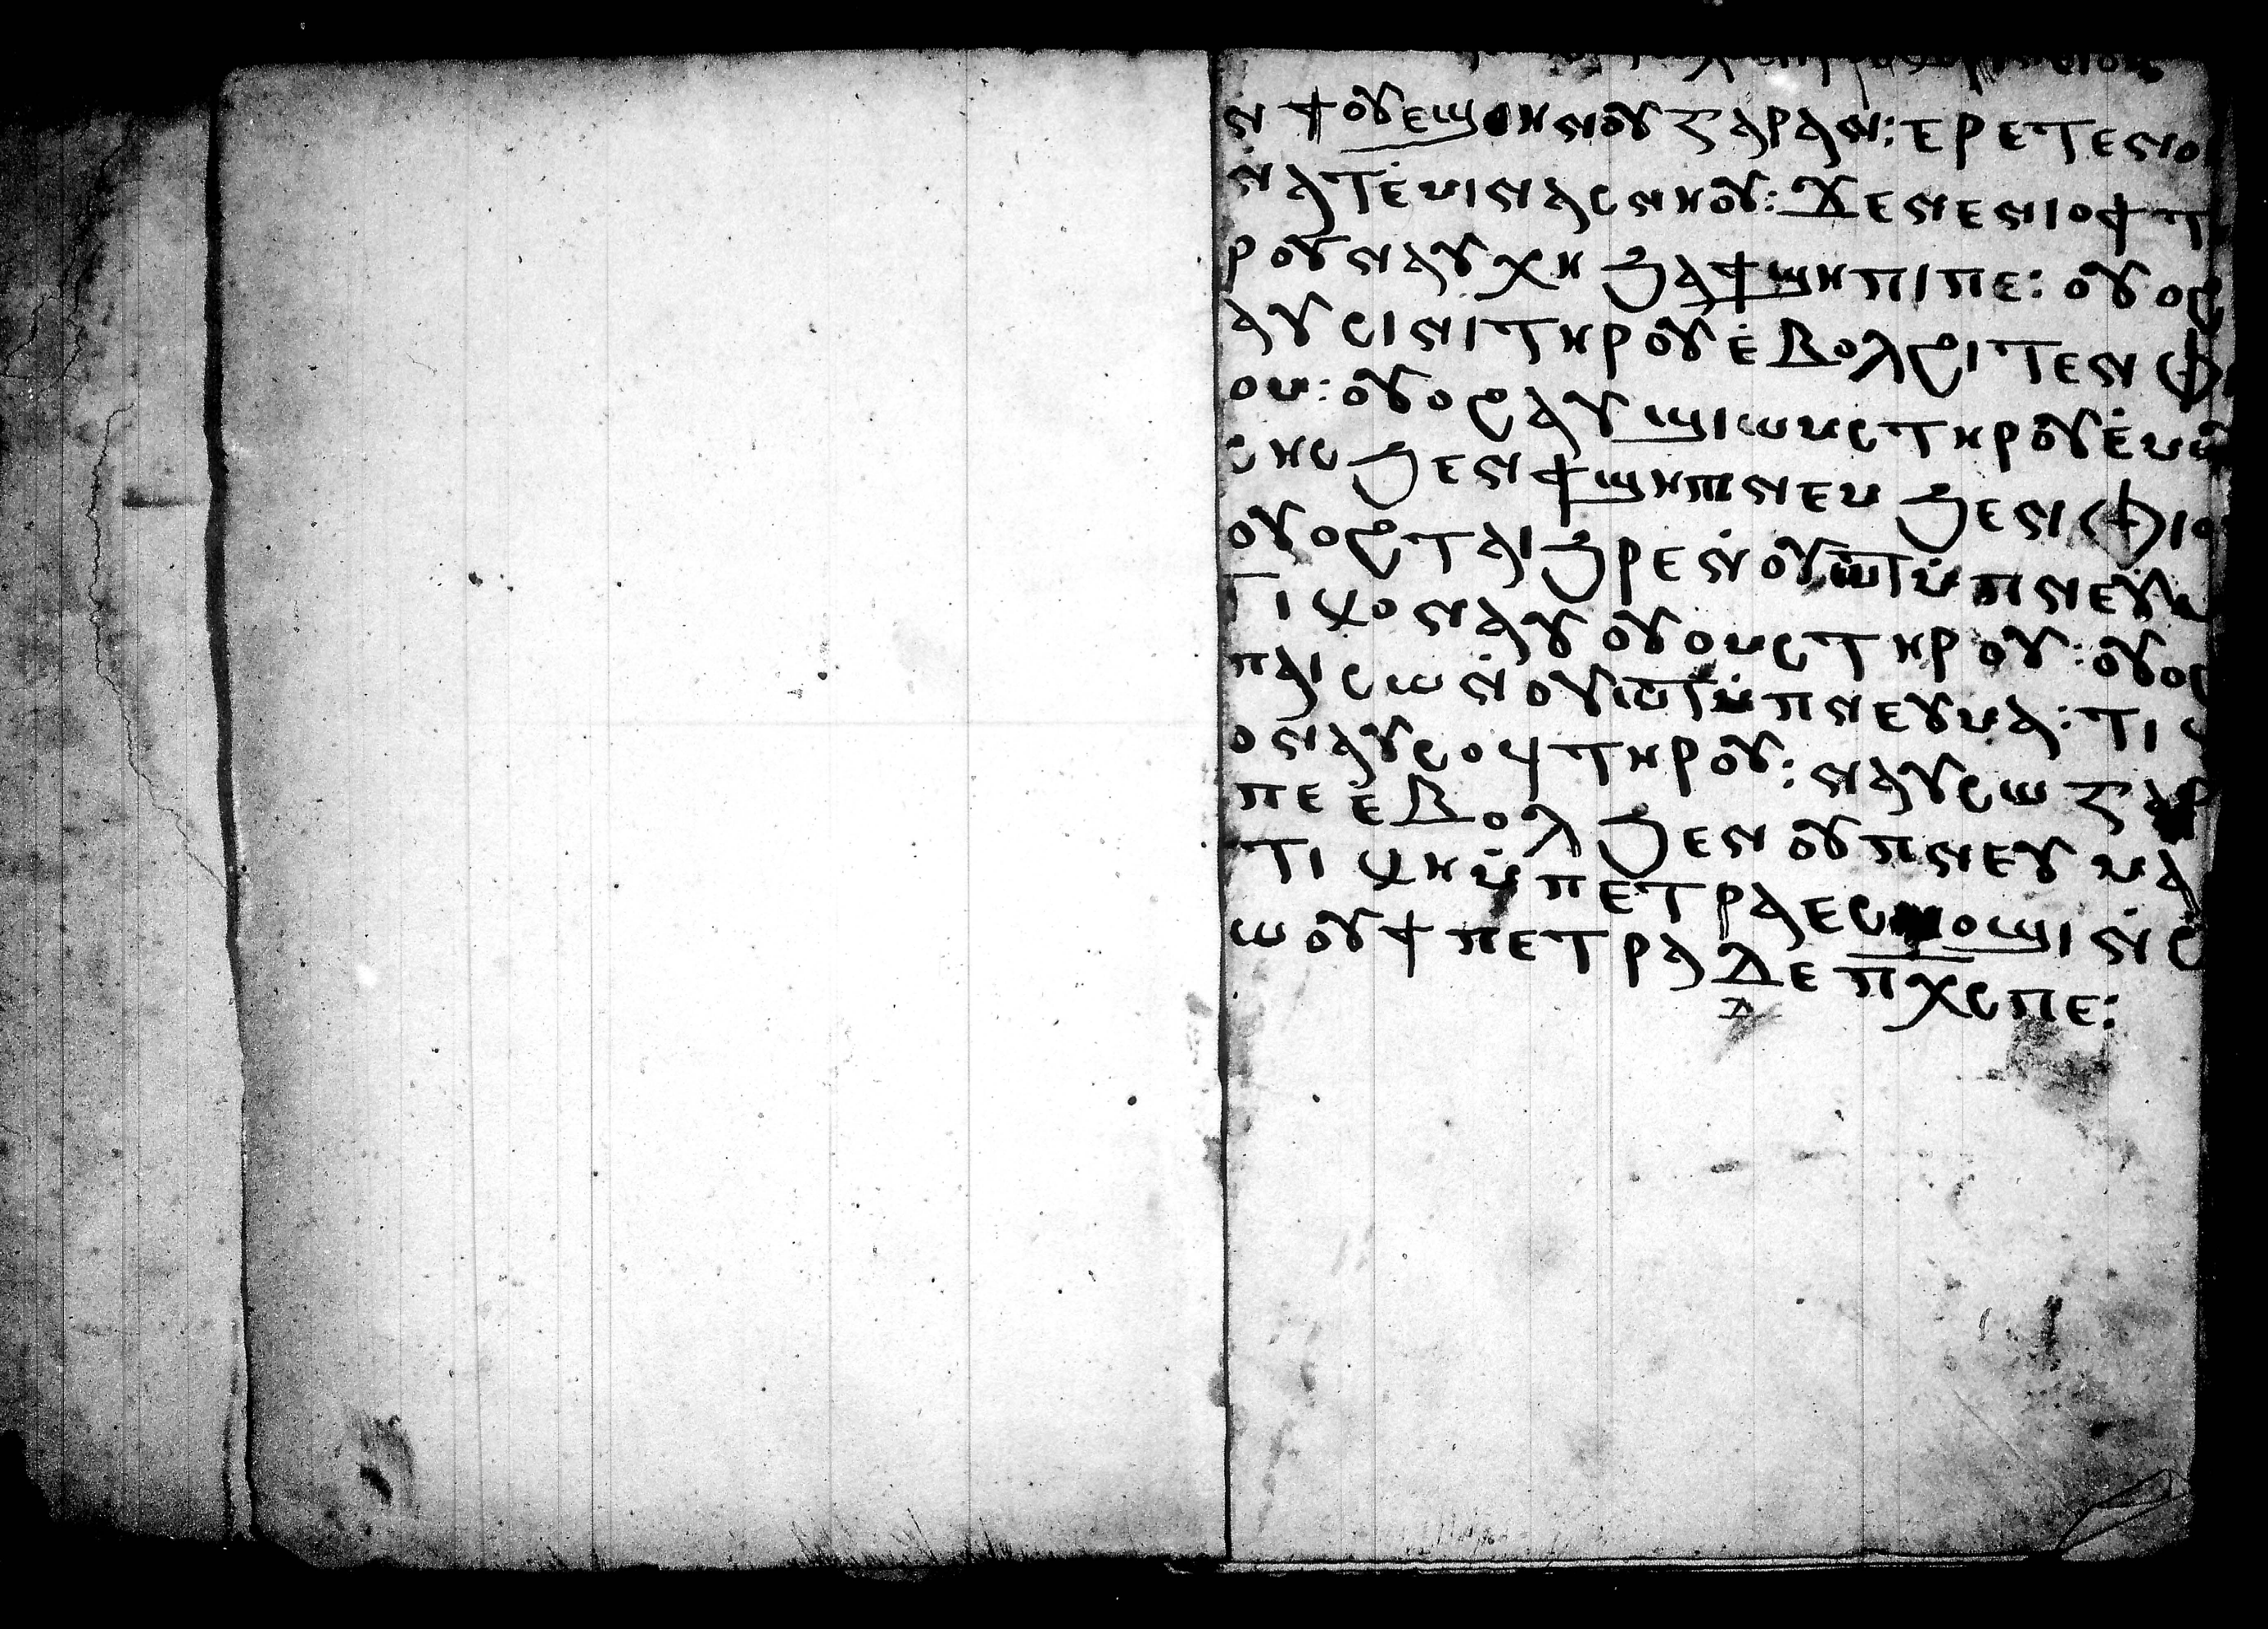 ⲛ ϯⲟⲩⲉϣⲏⲛⲟⲩ ⲅⲁⲣ ⲁⲛ: ⲉⲣⲉⲧⲉⲛⲟⲓ
ⲛⲁⲧⲉ̇ⲙⲓ ⲛⲁⲥⲛⲏⲟⲩ: ϫⲉ ⲛⲉⲛⲓⲟϯ ⲧ
ⲣⲟⲩ ⲛⲁⲩⲭⲏ ϧⲁ ϯϣⲏⲡⲓ ⲡⲉ: ⲟⲩⲟϩ
ⲁⲩⲥⲓⲛⲓ ⲧⲏⲣⲟⲩ ⲉ̇ⲃⲟⲗϩⲓⲧⲉⲛ ⲫⲓ
ⲟⲙ: ⲟⲩⲟϩ ⲁⲩϣⲓⲱⲙⲥ ⲧⲏⲣⲟⲩ ⲉ̇ⲙⲱ
ⲥⲏⲥ ϧⲉⲛ ϯϣⲏⲡⲓ ⲛⲉⲙ ϧⲉⲛ ⲫⲓⲟ
ⲟⲩⲟϩ ⲧⲁⲓϧⲣⲉ ⲛ̇ⲟⲩⲱⲧ ⲙ̇ⲡⲛⲉⲩⲙ
ⲧⲓⲕⲟⲛ ⲁⲩⲟⲩⲟⲙⲥ ⲧⲏⲣⲟⲩ: ⲟⲩⲟϩ
ⲡⲁⲓⲥⲱ ⲛ̇ⲟⲩⲱⲧ ⲙ̇ⲡⲛⲉⲩⲙⲁ: ⲧⲓⲕ
ⲟⲛ ⲁⲩⲥⲟϥ ⲧⲏⲣⲟⲩ: ⲛⲁⲩⲥⲱ ⲅⲁⲣ
ⲡⲉ ⲉ̇ⲃⲟⲗ ϧⲉⲛ ⲟⲩⲡⲛⲉⲩⲙⲁ
ⲧⲓⲕⲏ ⲙ̇ⲡⲉⲧⲣⲁ ⲉⲥⲙⲟϣⲓ ⲛ̇ⲥ
ⲱⲟⲩ ϯⲡⲉⲧⲣⲁ ⲇⲉ ⲡⲭⲥ ⲡⲉ: